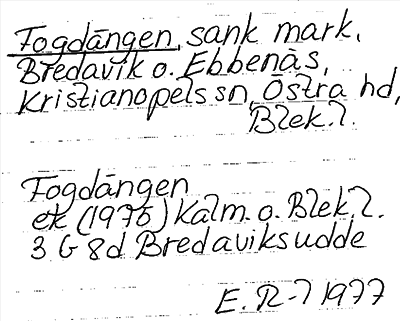 Fogdängen, sank mark,
Bredavik o. Ebbenäs,
Kristianopels sn, Östra hd,
Blek. l.
Fogdängen
ek (1975) Kalm. o. Blek. l.
3 G 8d Bredaviksudde
E. R-l 1977